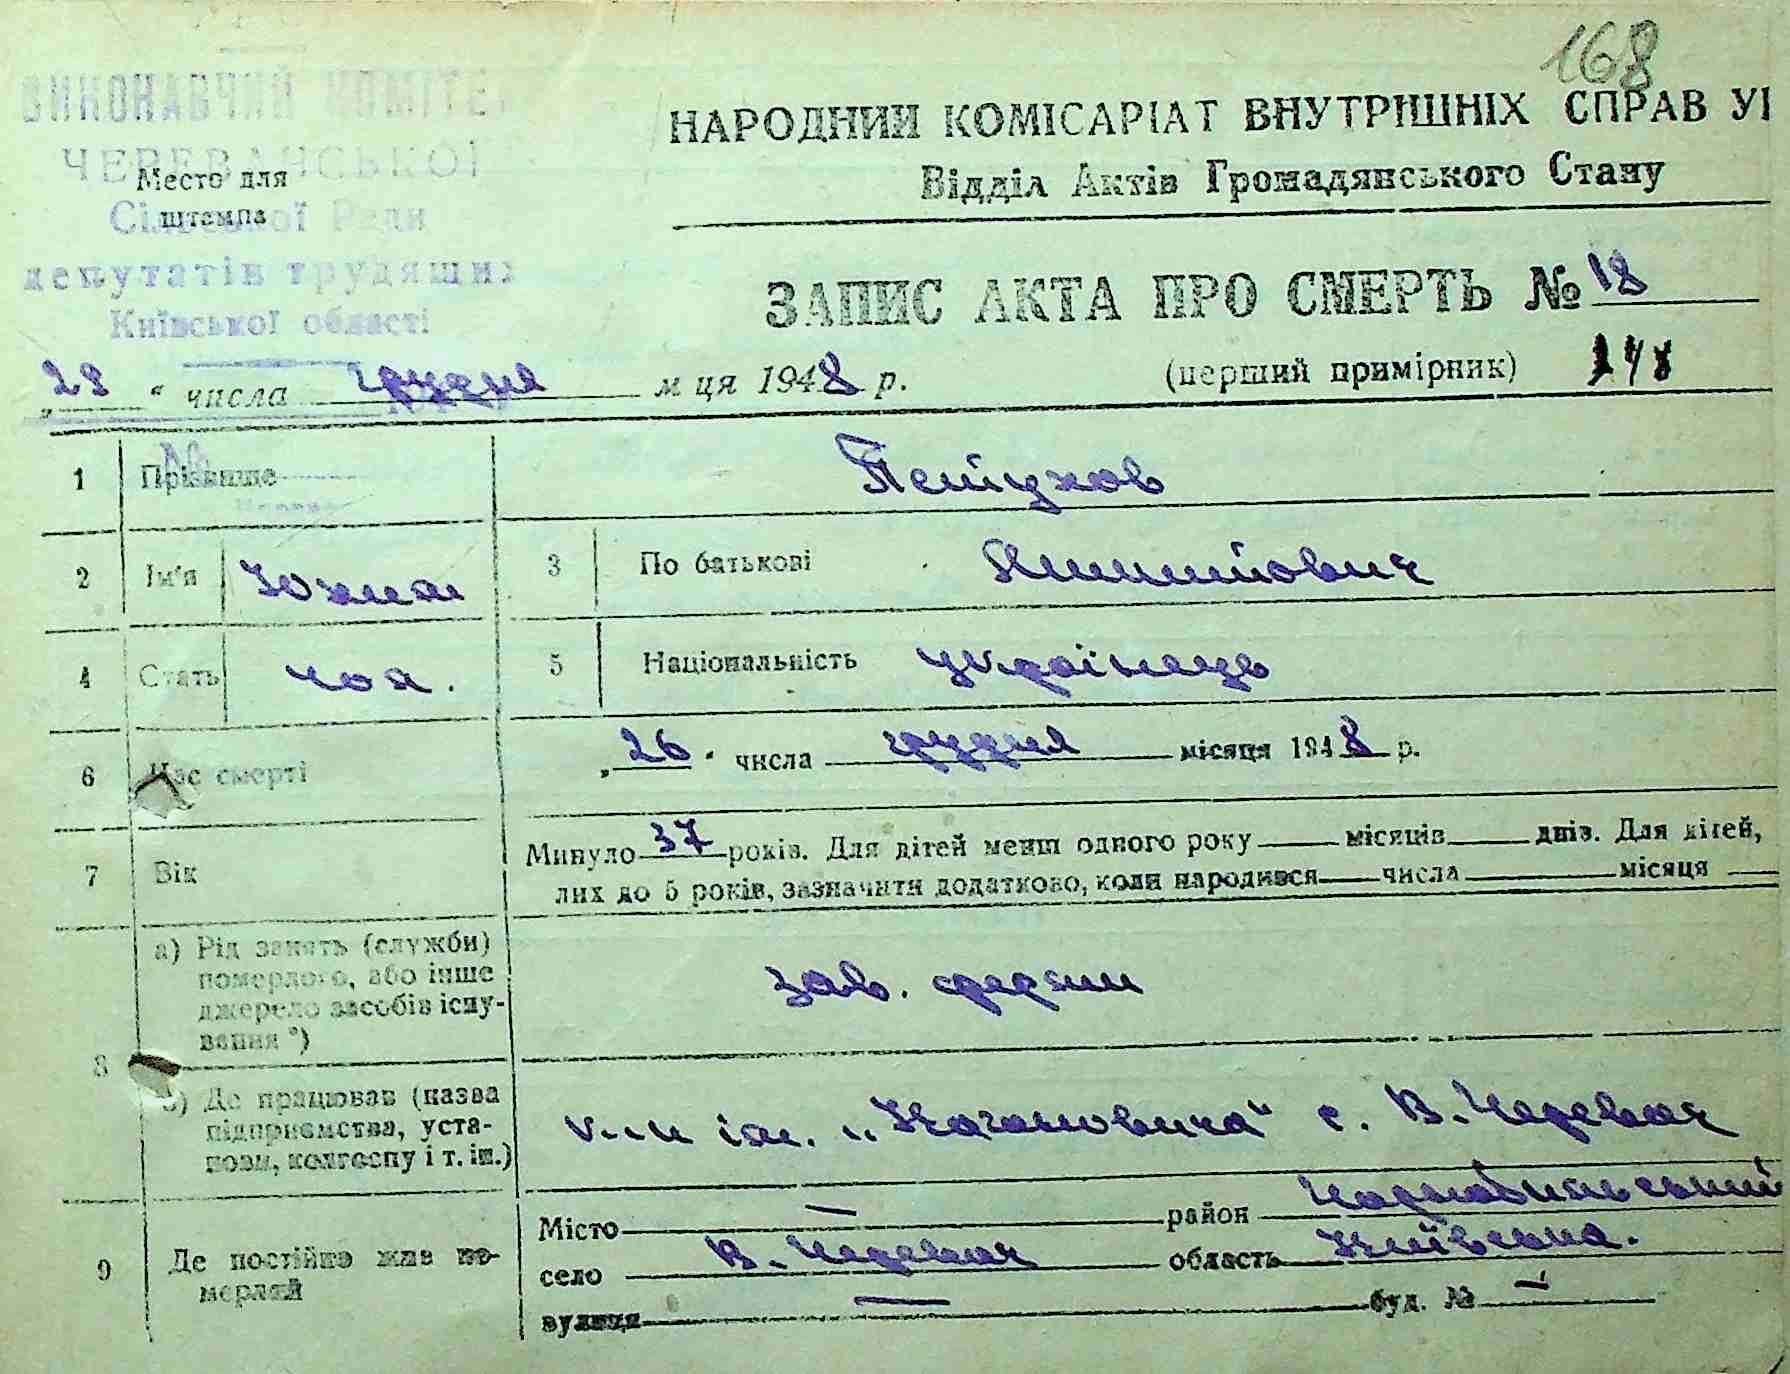 168
ВИКОНАВЧИЙ КОМІТЕ
ЧЕРЕВАНСЬКОЇ
Место для
штемпа
Сільської Ради
депутатів трудящих
Київської області
НАРОДНИЙ КОМІСАРІАТ ВНУТРІШНІХ СПРАВ УІ
Відділ Актів Громадянського Стану
ЗАПИС АКТА ПРО СМЕРТЬ № 18
„28“ числа грудня м ця 1948 р.
(перший примірник)
1 Прізвище Петухов
2 Ім'я Юхим 3 По батькові
4 Стать чол. 5 Національність українець
6 Час смерті „26“ числа грудня місяця 1948 р.
7 Вік Минуло 37 років. Для дітей менш одного року — місяців — днів. Для дітей,
лих до 5 років, зазначити додатково, коли народився — числа — місяця
8 а) Рід занять (служби) померлого, або інше джерело засобів існування *) зав. ферми
б) Де працював (назва підприємства, установи, колгоспу і т. ін.) к-п ім. „Кагановича“ с. В. Черевач
9 Де постійно жив померлий
Місто — район Чорнобильський
село В. Черевач область Київська.
вулиця — буд. № —